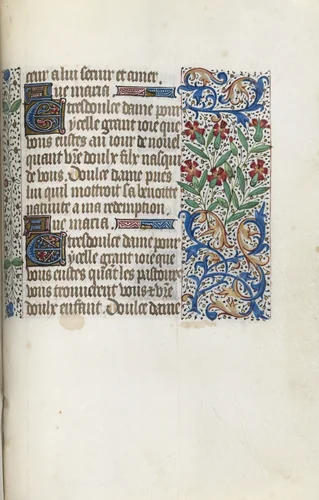 ceur a lui seruir et amer.
Aue maria
Et tresdoulce dame pour
ycelle grant ioie que
vous eustes au iour de nouel
quant vr̄e doulx filz nasqui
de vous. Doulce dame pries
lui quil mottroit sa benoitte
natiuite a ma redemption.
Aue maria.
Et tresdoulce dame pour
ycelle grant ioie que
vous eustes quāt les pastours
vous trouuerent vous et vr̄e
doulx enfant. Doulce dame